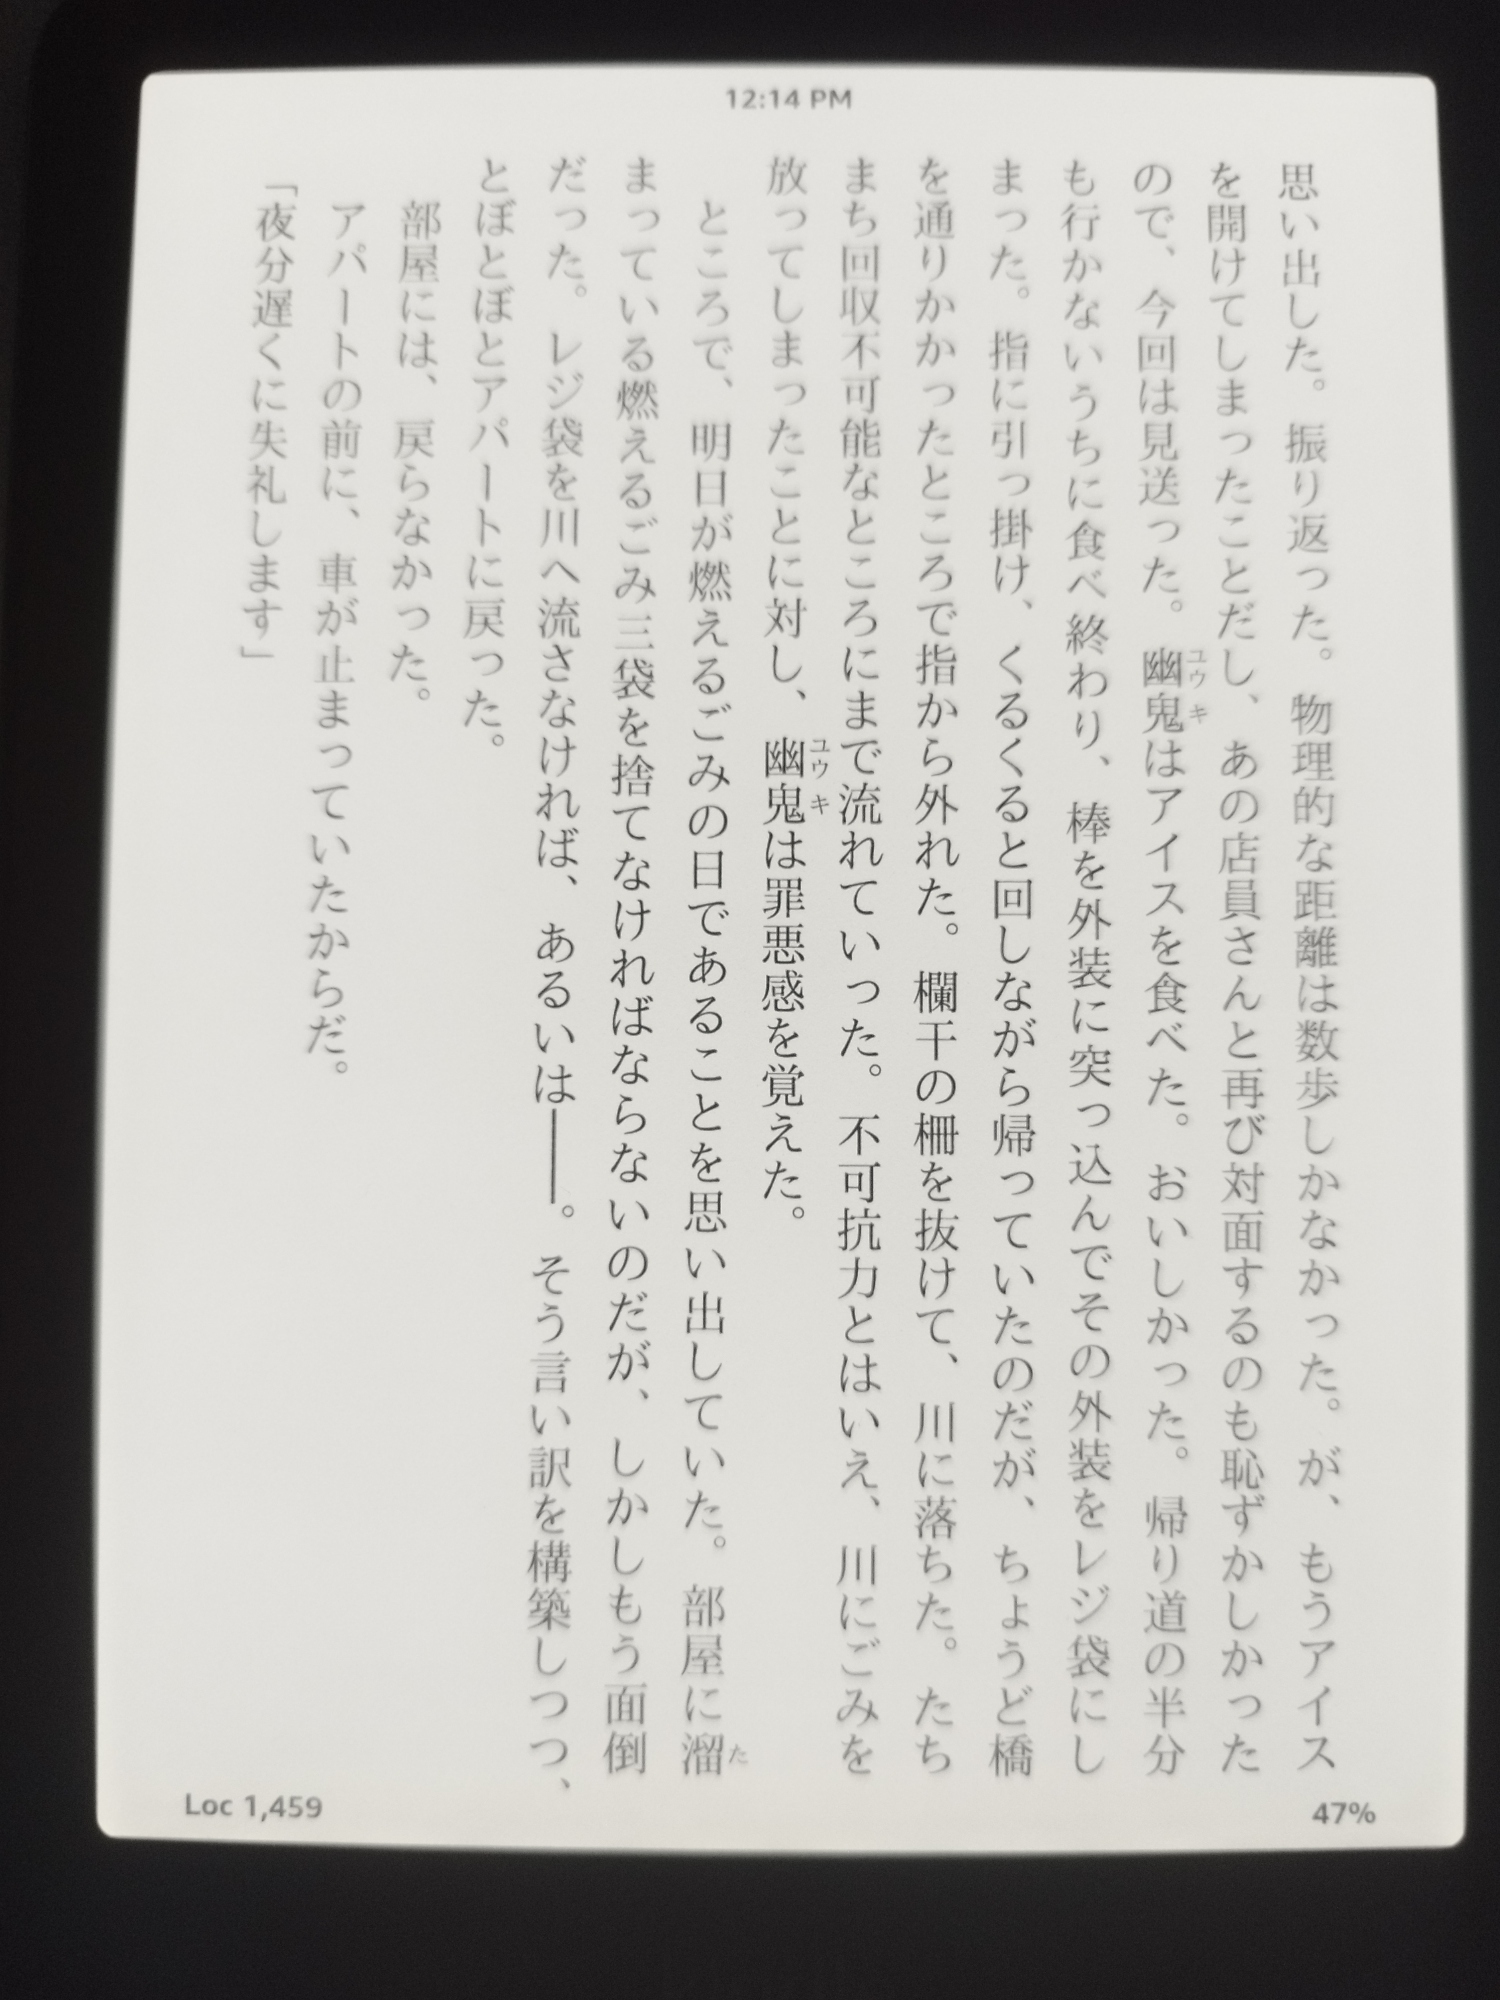 12:14 PM
思い出した。振り返った。物理的な距離は数歩しかなかった。が、もうアイス
を開けてしまったことだし、あの店員さんと再び対面するのも恥ずかしかった
ので、今回は見送った。幽鬼はアイスを食べた。おいしかった。帰り道の半分
ユウキ
も行かないうちに食べ終わり、棒を外装に突っ込んでその外装をレジ袋にし
まった。指に引っ掛け、くるくると回しながら帰っていたのだが、ちょうど橋
を通りかかったところで指から外れた。欄干の柵を抜けて、川に落ちた。たち
まち回収不可能なところにまで流れていった。不可抗力とはいえ、川にごみを
放ってしまったことに対し、幽鬼は罪悪感を覚えた。
ユウキ
ところで、明日が燃えるごみの日であることを思い出していた。部屋に溜
た
まっている燃えるごみ三袋を捨てなければならないのだが、しかしもう面倒
だった。レジ袋を川へ流さなければ、あるいは――。そう言い訳を構築しつつ、
とぼとぼとアパートに戻った。
部屋には、戻らなかった。
アパートの前に、車が止まっていたからだ。
「夜分遅くに失礼します」
Loc 1,459
47%